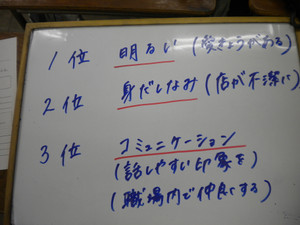 1位 明るい (愛きょうがある)
2位 身だしなみ (店が不潔に)
3位 コミュニケーション
(話しやすい印象を)
(職場内で仲良くする)